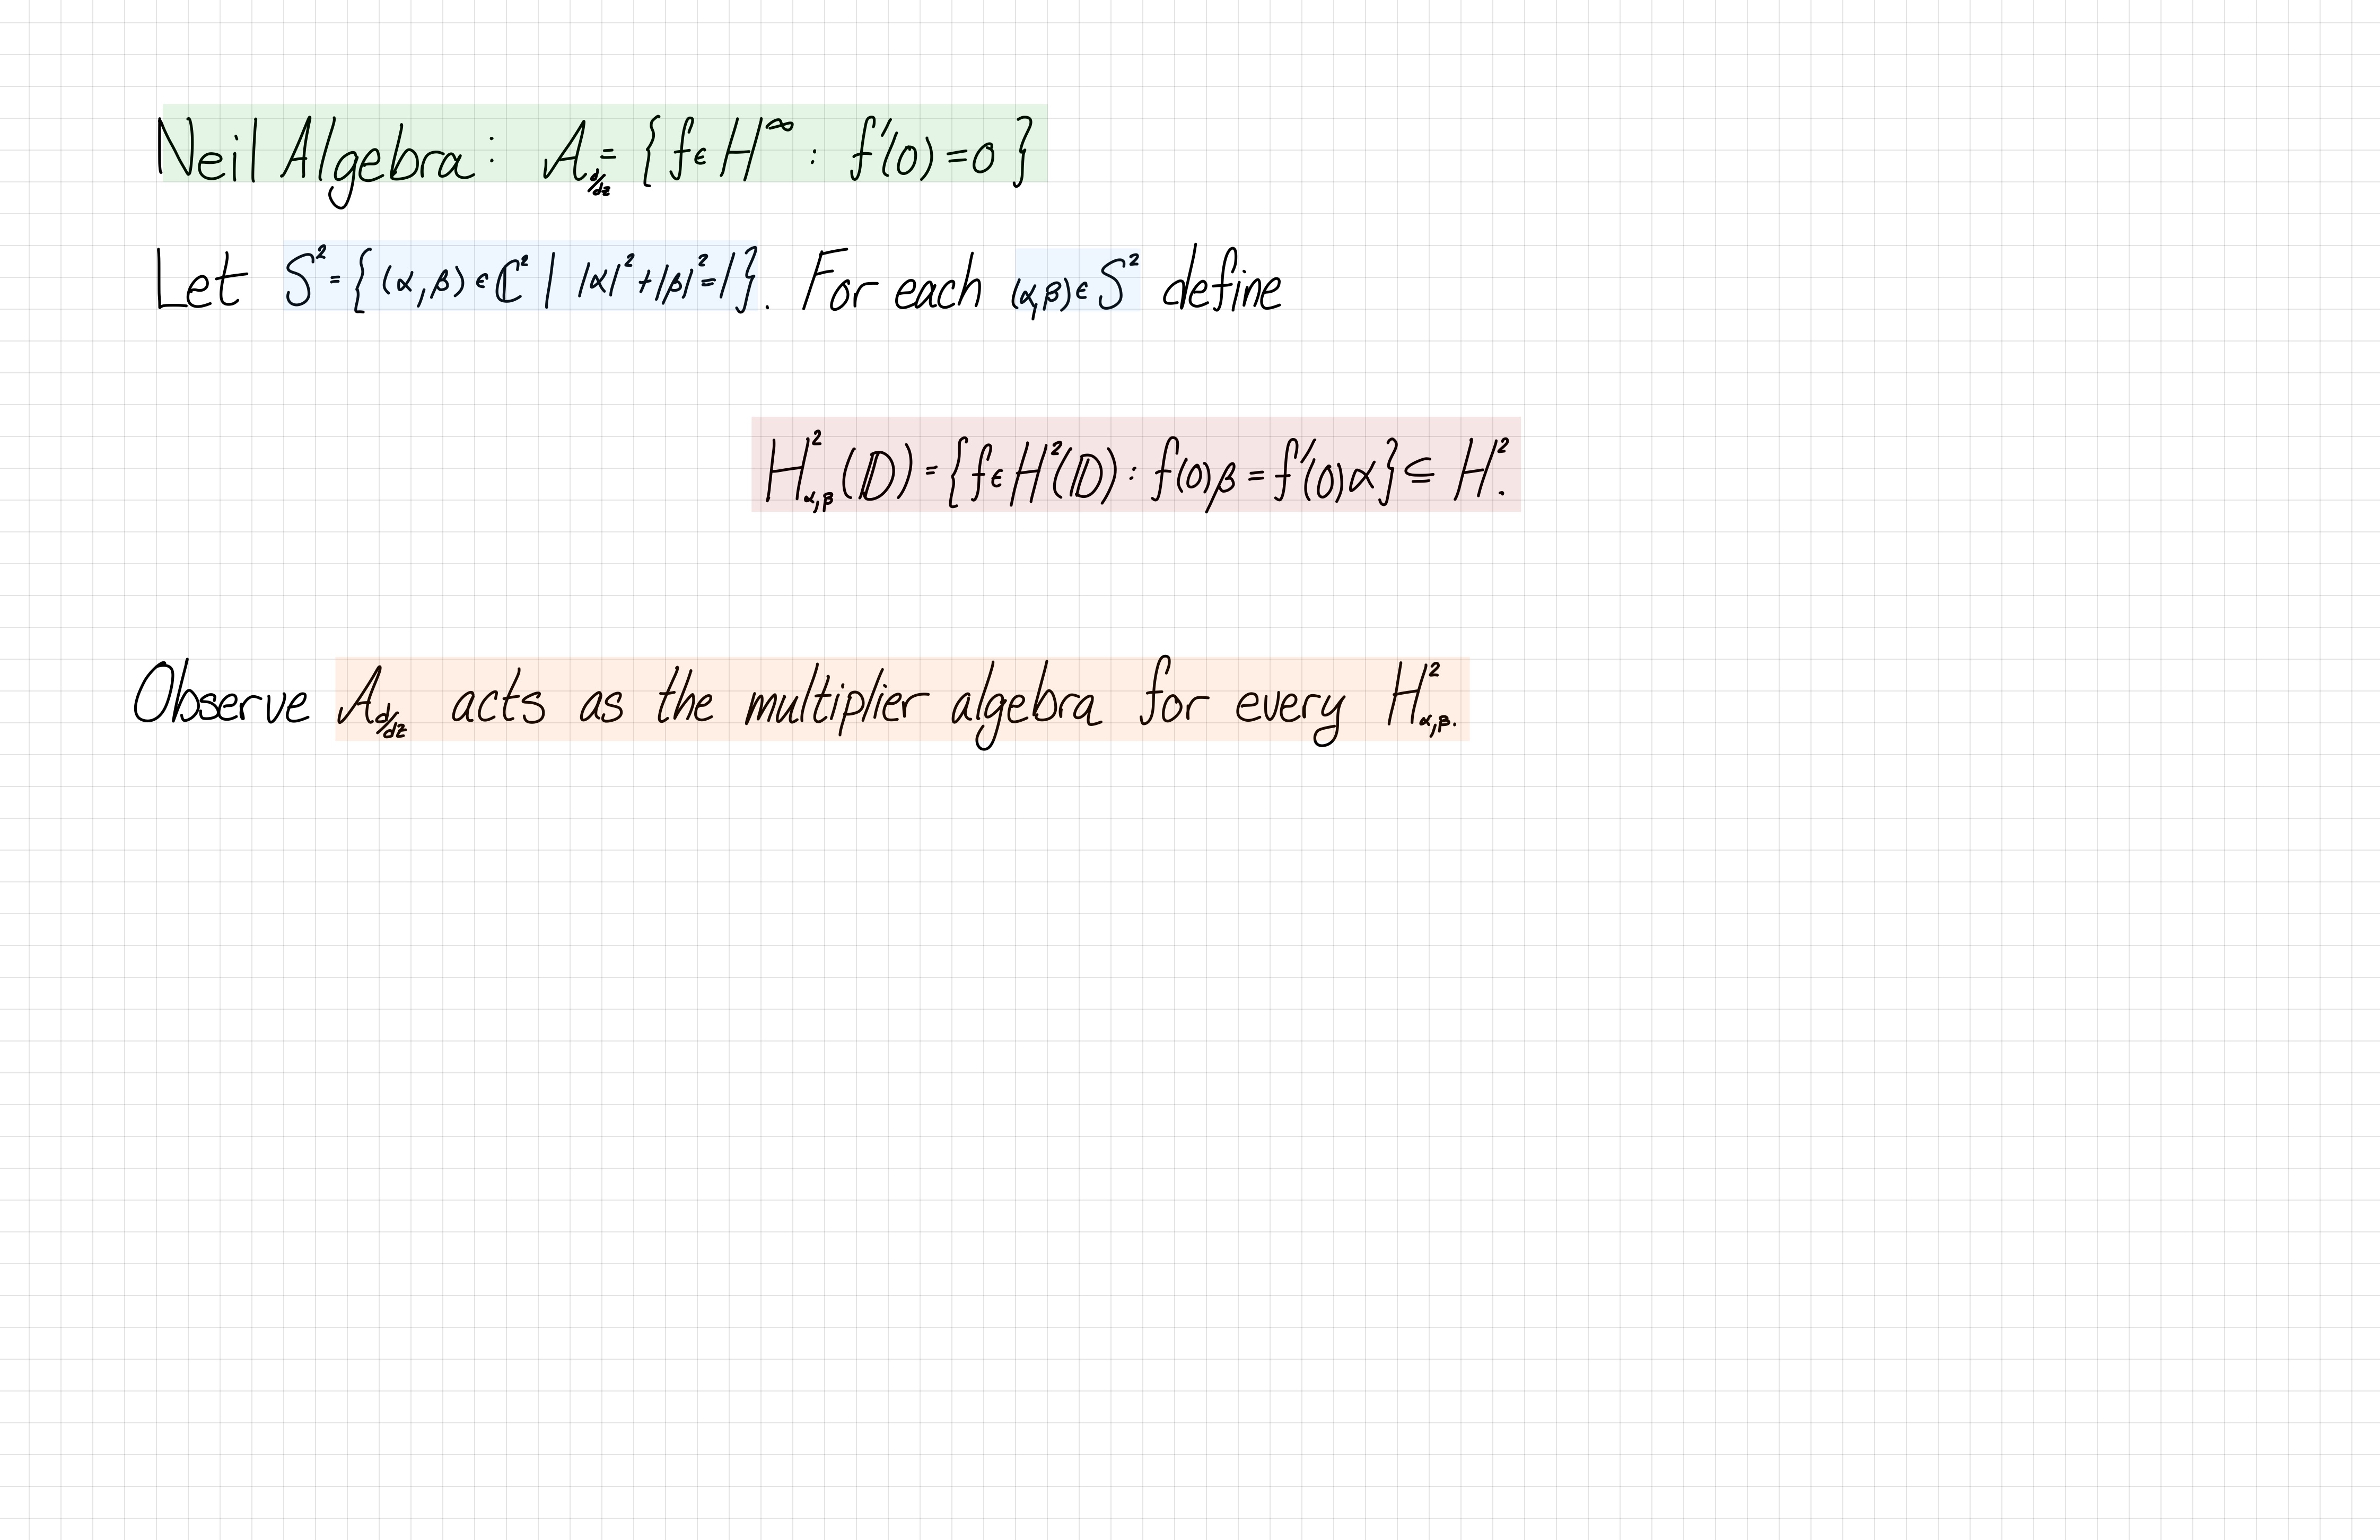 Neil Algebra: A_{d/dz} = {f ∈ H^∞ : f'(0) = 0}
Let S² = {(α, β) ∈ ℂ² | |α|² + |β|² = 1}. For each (α, β) ∈ S² define
H²_{α,β}(𝔻) = {f ∈ H²(𝔻) : f(0)β = f'(0)α} ⊆ H².
Observe A_{d/dz} acts as the multiplier algebra for every H²_{α,β}.